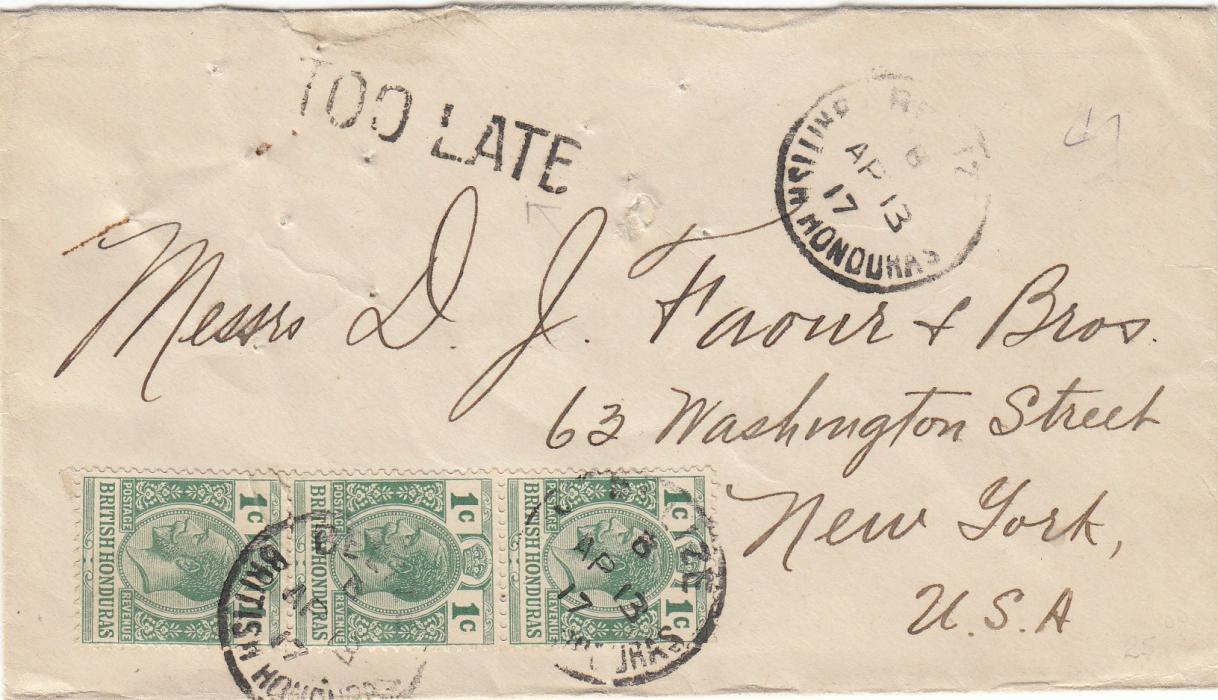 TOO LATE
BRITISH HONDURAS
AP 13
17
Messrs D. J. Faour & Bros.
63 Washington Street
New York,
U.S.A
1c POSTAGE BRITISH HONDURAS REVENUE
1c POSTAGE BRITISH HONDURAS REVENUE 1c
1c POSTAGE BRITISH HONDURAS REVENUE 1c
BRITISH HONDURAS
8
AP 13
17
25